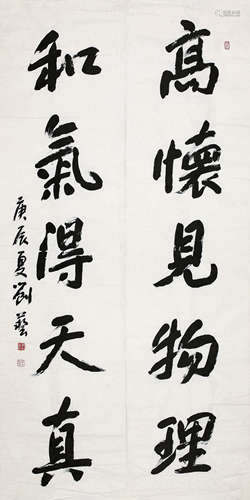 高懷見物理
和氣得天真
庚辰夏劉藝